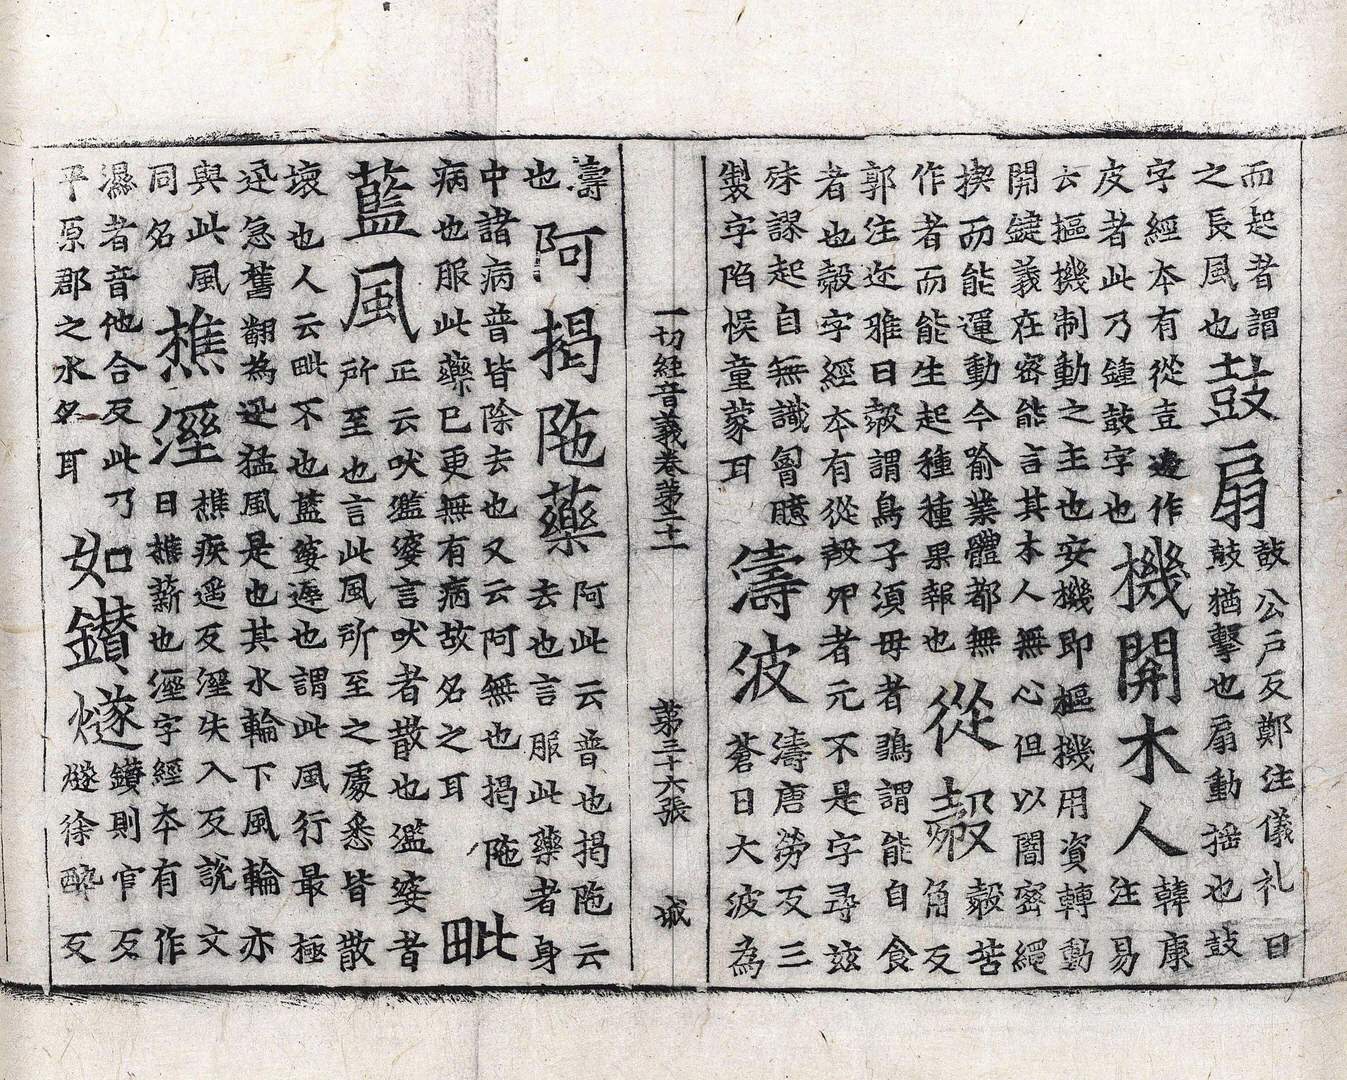 而起者謂之長風也鼓扇鼓公戶反鄭注儀礼曰鼓猶擊也扇動搖也鼓
字經本有從壴邊作皮者此乃鐘鼓字也機開木人韓康注易
云樞機制動之主也安機即樞機用資轉動開鍵義在密能言其木人無心但以闇密繩
楔而能運動今喻業體都無作者而能生起種種果報也從㲉㲉苦角反
郭注迩雅曰㲉謂鳥子須母者鷄謂能自食者也㲉字經本有從殼夘者元不是字尋茲
殊謬起自無識胷臆製字陷悮童蒙耳濤波濤唐勞反三蒼曰大波為
一切經音義卷第二十一 第三十六張 城
濤也阿揭陁藥阿此云普也揭陁云去也言服此藥者身
中諸病普皆除去也又云阿無也揭陁病也服此藥已更無有病故名之耳毗
藍風正云吠濫婆言吠者散也濫婆者所至也言此風所至之處悉皆散
壞也人云毗不也藍婆遲也謂此風行最極迅急舊翻為迅猛風是也其水輪下風輪亦
與此風同名樵溼樵疾遥反溼失入反說文曰樵薪也溼字經本有作
濕者音他合反此乃平原郡之水名耳如鑚燧鑚則官反燧徐醉反